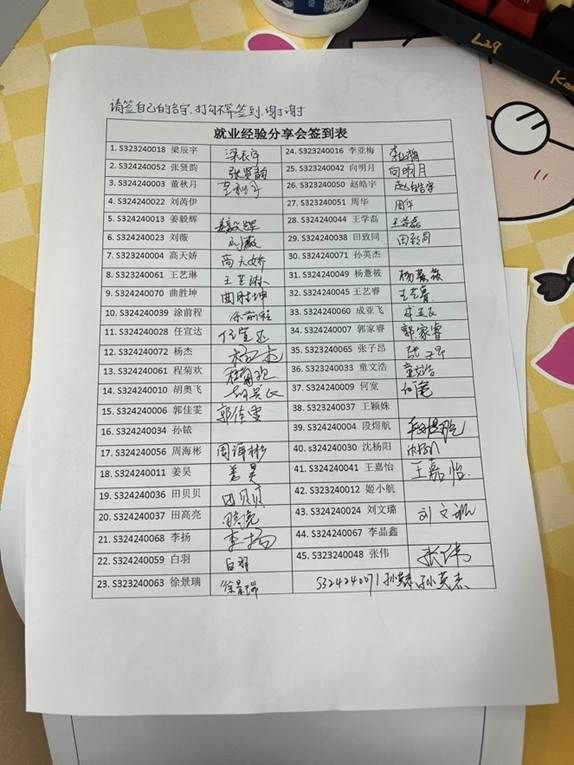 请签自己的名字,打勾不算签到,谢谢
L29
就业经验分享会签到表
1. S323240018 梁辰宇 梁辰宇 24. S324240016 李亚梅 李亚梅
2. S324240052 张贤韵 张贤韵 25. S324240042 向明月 向明月
3. S324240003 董秋月 26. S324240050 赵皓宇 赵皓宇
4. S324240022 刘芮伊 27. S324240051 周华 周华
5. S324240013 姜毅辉 姜毅辉 28. S324240044 王学磊 王学磊
6. S324240023 刘薇 刘薇 29. S324240038 田致同 田致同
7. S324240004 高天娇 高天娇 30. S324240071 孙英杰
8. S323240061 王艺琳 王艺琳 31. S324240049 杨薏筱 杨薏筱
9. S324240070 曲胜坤 曲胜坤 32. S324240045 王艺睿 王艺睿
10. S324240039 涂前程 涂前程 33. S324240060 成亚飞 成亚飞
11. S324240028 任宣达 任宣达 34. S324240007 郭家睿 郭家睿
12. S324240072 杨杰 杨杰 35. S324240065 张子昂 张子昂
13. S324240061 程菊欢 程菊欢 36. S324240033 童文浩 童文浩
14. S324240010 胡奥飞 37. S324240009 何宽 何宽
15. S324240006 郭佳雯 郭佳雯 38. S324240037 王颖妹
16. S324240034 孙铱 39. S324240004 段煜航 段煜航
17. S324240056 周海彬 周海彬 40. s324240030 沈杨阳
18. S324240011 姜昊 姜昊 41. S324240041 王嘉怡 王嘉怡
19. S324240036 田贝贝 田贝贝 42. S323240012 姬小航
20. S324240037 田高亮 43. S324240024 刘文璐 刘文璐
21. S324240068 李扬 李扬 44. S324240067 李晶鑫
22. S324240059 白羽 白羽 45. S323240048 张伟 张伟
23. S323240063 徐景瑞 徐景瑞 S324240071 孙英杰 孙英杰